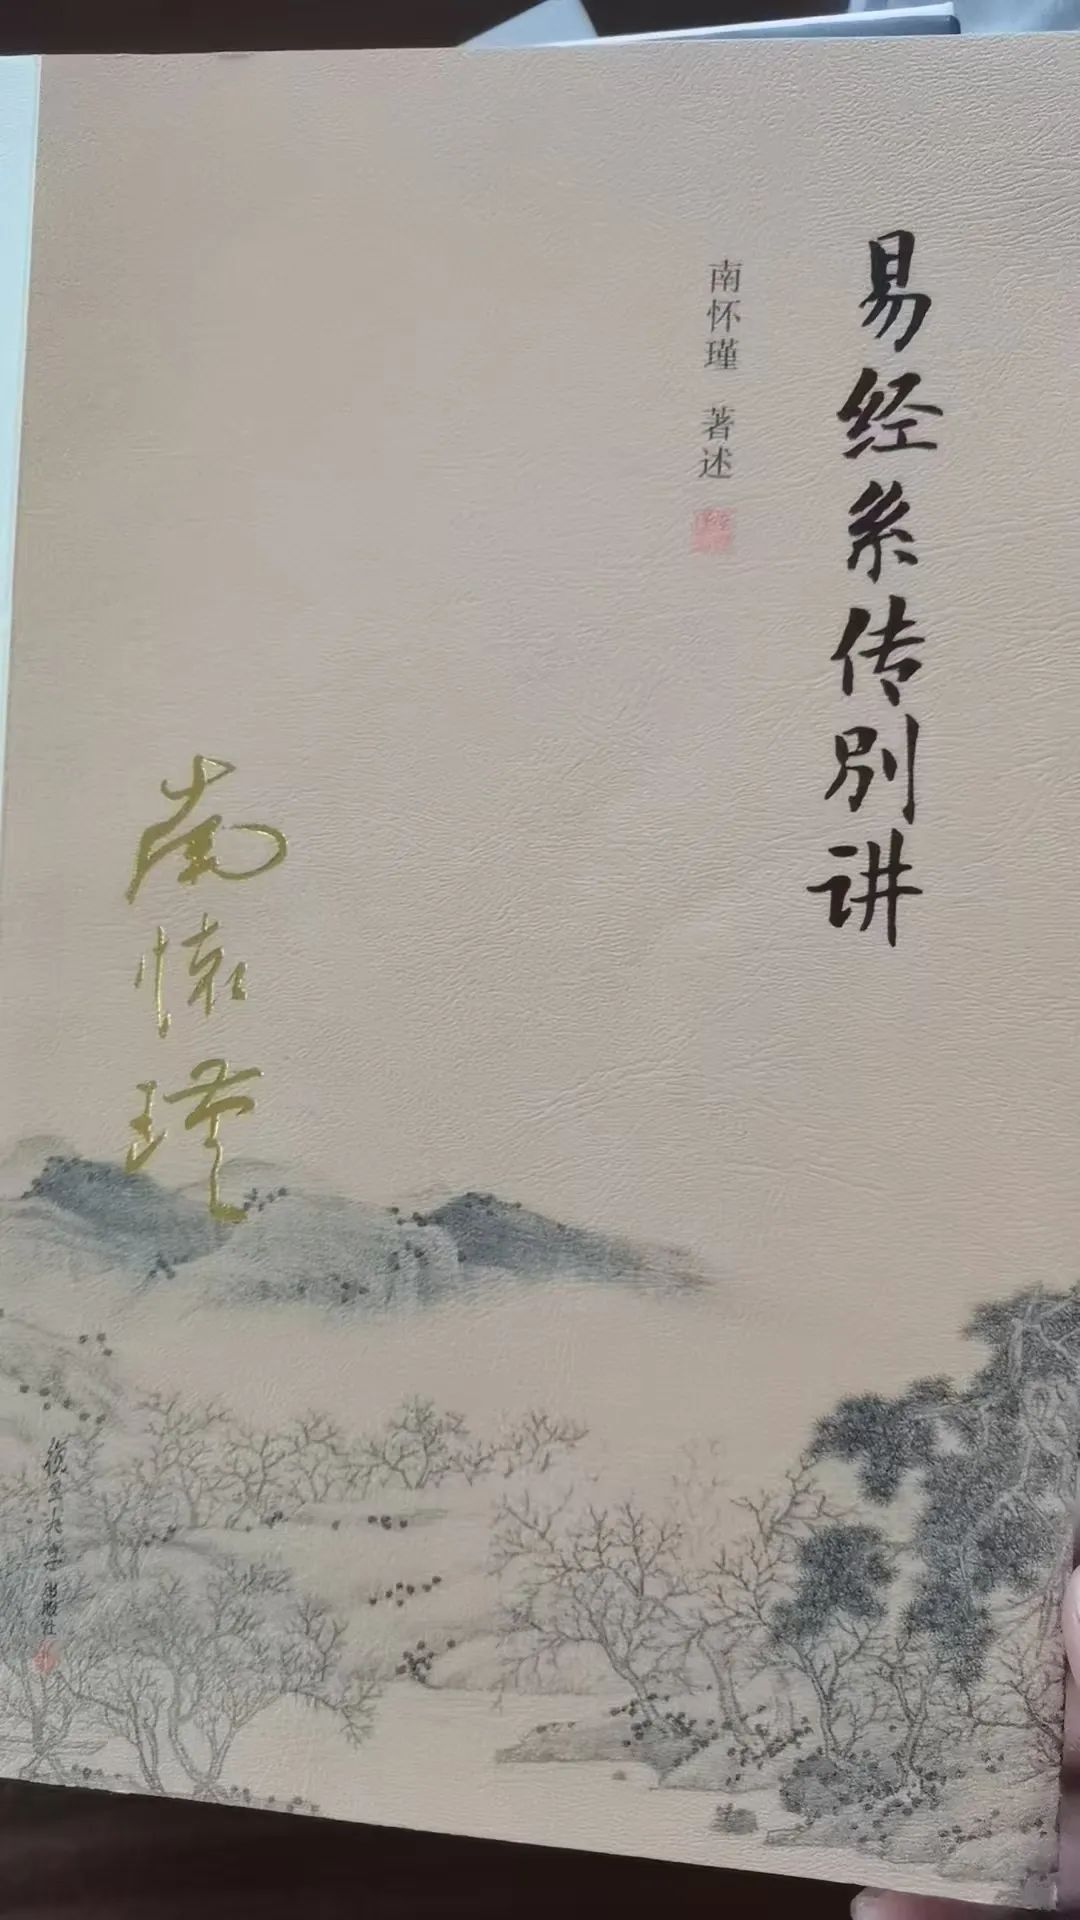 易经系传别讲
南怀瑾 著述
南懷瑾
復旦大学出版社